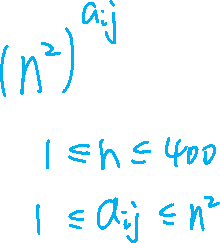 (n²)^{a_{ij}}
1 ≤ n ≤ 400
1 ≤ a_{ij} ≤ n²